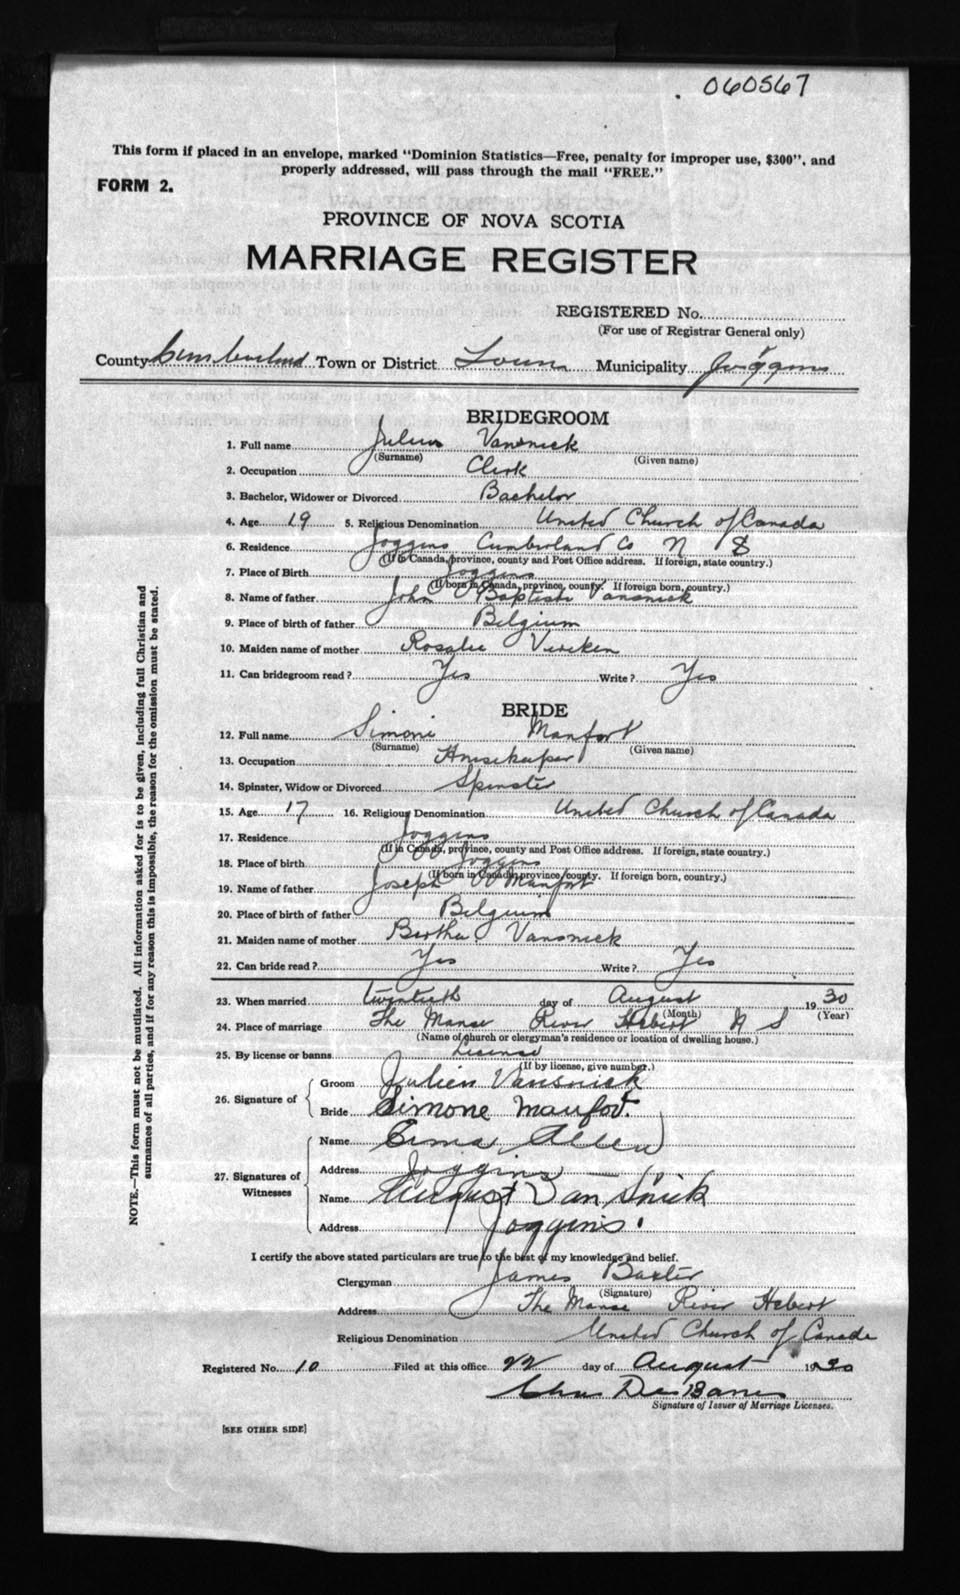 060567
This form if placed in an envelope, marked "Dominion Statistics—Free, penalty for improper use, $300", and
properly addressed, will pass through the mail "FREE."
FORM 2.
PROVINCE OF NOVA SCOTIA
MARRIAGE REGISTER
REGISTERED No.
(For use of Registrar General only)
County Cumberland Town or District Town Municipality Joggins
BRIDEGROOM
1. Full name Julien Vansnick
(Surname) (Given name)
2. Occupation Clerk
3. Bachelor, Widower or Divorced Bachelor
4. Age 19 5. Religious Denomination United Church of Canada
6. Residence Joggins Cumberland Co N S
(If in Canada, province, county and Post Office address. If foreign, state country.)
7. Place of Birth Joggins
(If born in Canada, province, county. If foreign born, country.)
8. Name of father John Baptist Vansnick
9. Place of birth of father Belgium
10. Maiden name of mother Rosalie
11. Can bridegroom read? Yes Write? Yes
BRIDE
12. Full name Simone Manfort
(Surname) (Given name)
13. Occupation Housekeeper
14. Spinster, Widow or Divorced Spinster
15. Age 17 16. Religious Denomination United Church of Canada
17. Residence Joggins
(If in Canada, province, county and Post Office address. If foreign, state country.)
18. Place of birth Joggins
(If born in Canada, province, county. If foreign born, country.)
19. Name of father Joseph Manfort
20. Place of birth of father Belgium
21. Maiden name of mother Bertha Vansnick
22. Can bride read? Yes Write? Yes
23. When married twentieth day of August 1930
(Month) (Year)
24. Place of marriage The Manse River Hebert N S
(Name of church or clergyman's residence or location of dwelling house.)
25. By license or banns License
(If by license, give number.)
26. Signature of
Groom Julien Vansnick
Bride Simone Manfort
27. Signatures of Witnesses
Name Allen
Address Joggins
Name August Van Snick
Address Joggins.
I certify the above stated particulars are true to the best of my knowledge and belief.
Clergyman James Baxter
(Signature)
Address The Manse River Hebert
Religious Denomination United Church of Canada
Registered No. 10 Filed at this office 22 day of August 1930
Chas DesBarres
Signature of Issuer of Marriage Licenses.
[SEE OTHER SIDE]
NOTE.—This form must not be mutilated. All information asked for is to be given, including full Christian and
surnames of all parties, and if for any reason this is impossible, the reason for the omission must be stated.